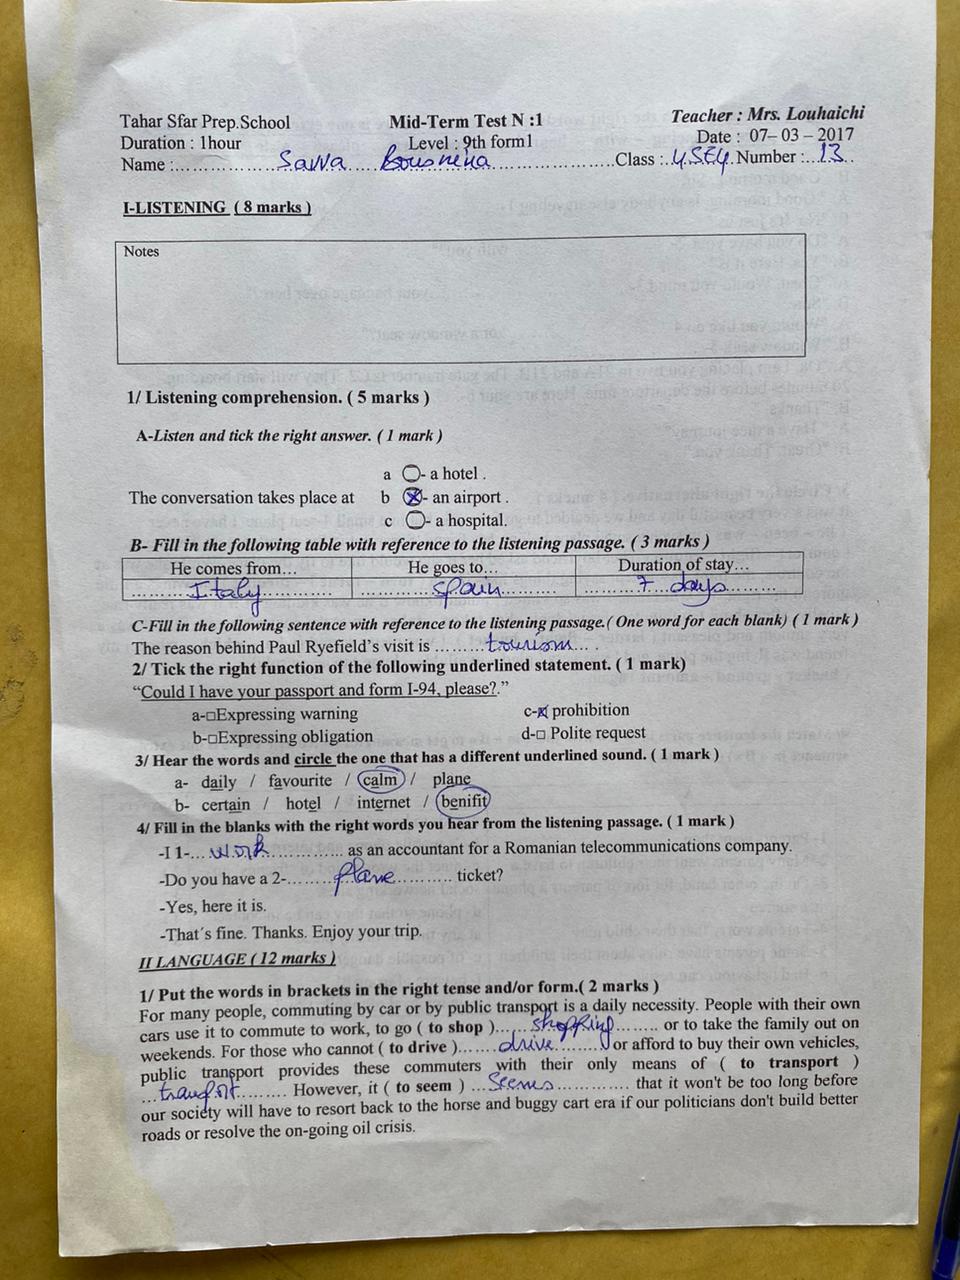 Tahar Sfar Prep.School Mid-Term Test N :1 Teacher : Mrs. Louhaichi
Duration : 1hour Level : 9th form1 Date : 07– 03 – 2017
Name :.................................................Class :..4SE4. Number :..13..
I-LISTENING ( 8 marks )
Notes
1/ Listening comprehension. ( 5 marks )
A-Listen and tick the right answer. ( 1 mark )
a - a hotel .
The conversation takes place at b - an airport .
c - a hospital.
B- Fill in the following table with reference to the listening passage. ( 3 marks )
He comes from… He goes to… Duration of stay…
Italy spain 7 days
C-Fill in the following sentence with reference to the listening passage.( One word for each blank) ( 1 mark )
The reason behind Paul Ryefield’s visit is .........tourism.... .
2/ Tick the right function of the following underlined statement. ( 1 mark)
“Could I have your passport and form I-94, please?.”
a-□Expressing warning c-☒ prohibition
b-□Expressing obligation d-□ Polite request
3/ Hear the words and circle the one that has a different underlined sound. ( 1 mark )
a- daily / favourite / calm / plane
b- certain / hotel / internet / benifit
4/ Fill in the blanks with the right words you hear from the listening passage. ( 1 mark )
-I 1-...work.............. as an accountant for a Romanian telecommunications company.
-Do you have a 2-........plane.......... ticket?
-Yes, here it is.
-That´s fine. Thanks. Enjoy your trip.
II LANGUAGE ( 12 marks )
1/ Put the words in brackets in the right tense and/or form.( 2 marks )
For many people, commuting by car or by public transport is a daily necessity. People with their own
cars use it to commute to work, to go ( to shop )......shopping........ or to take the family out on
weekends. For those who cannot ( to drive ).......drive.........or afford to buy their own vehicles,
public transport provides these commuters with their only means of ( to transport )
...transport.......... However, it ( to seem ) ...Seems............. that it won't be too long before
our society will have to resort back to the horse and buggy cart era if our politicians don't build better
roads or resolve the on-going oil crisis.